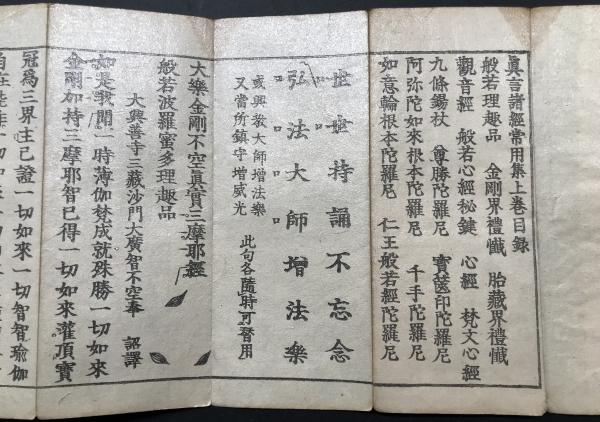 眞言諸經常用集上卷目錄
般若理趣品　金剛界禮懺　胎藏界禮懺
觀音經　般若心經秘鍵　心經　梵文心經
九條錫杖　尊勝陀羅尼　寶篋印陀羅尼
阿弥陀如來根本陀羅尼　千手陀羅尼
如意輪根本陀羅尼　仁王般若經陀羅尼
世世持誦不忘念
弘法大師增法樂
或興教大師增法樂
又當所鎮守增威光　此句各隨時可替用
大樂金剛不空眞實三摩耶經
般若波羅蜜多理趣品
大興善寺三藏沙門大廣智不空奉　詔譯
如是我聞一時薄伽梵成就殊勝一切如來
金剛加持三摩耶智已得一切如來灌頂寶
冠爲三界主已證一切如來一切智智瑜伽
自在能作一切如來一切